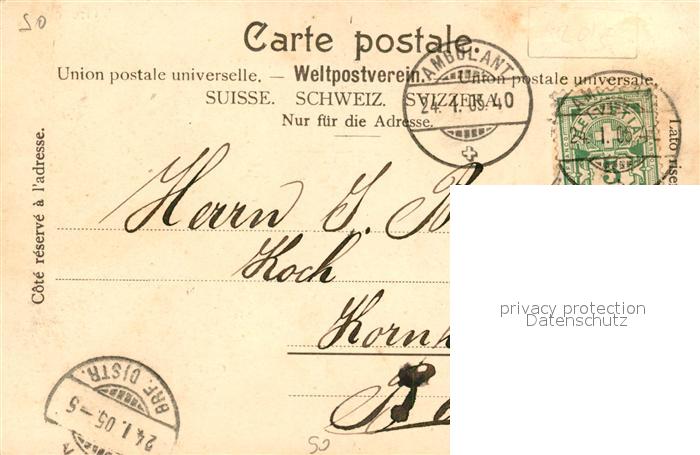 50
Carte postale.
Union postale universelle. — Weltpostverein. — Union postale universale.
SUISSE. SCHWEIZ. SVIZZERA.
Nur für die Adresse.
AMBULANT
24. I. 05. 40
HELVETIA
I. 05
5
Côté réservé à l'adresse.
Herrn J. B
Koch
Korn
B
privacy protection
Datenschutz
BRF. DISTR.
24. I. 05. – 5
50